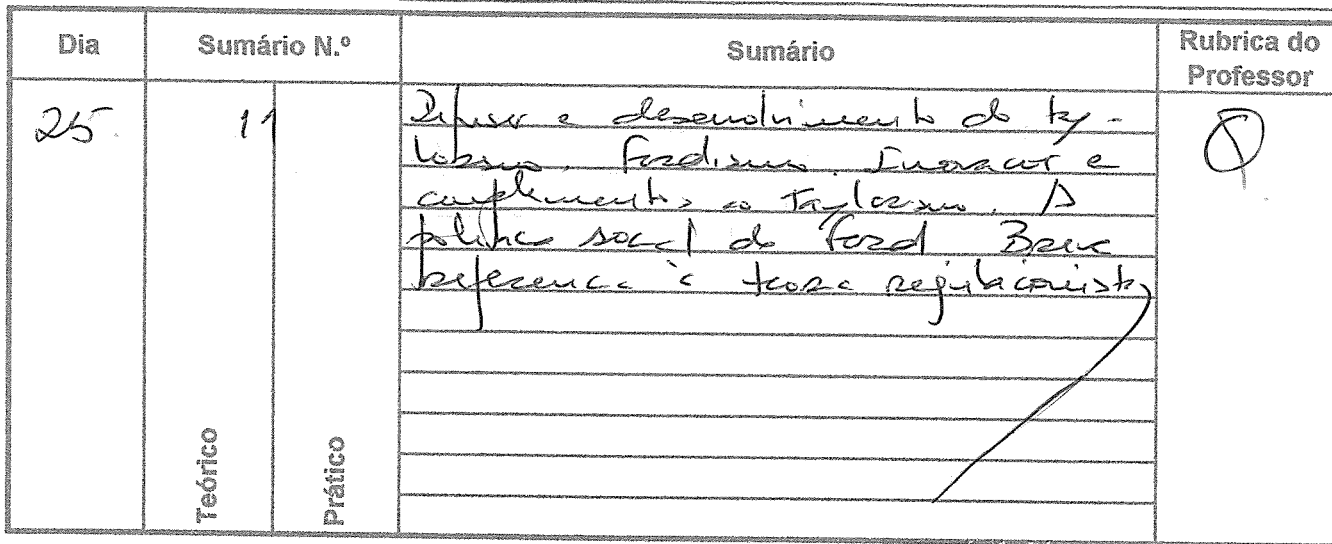 Dia Sumário N.º Sumário Rubrica do Professor
25. 11 Difusão e desenvolvimento do tay-
lorismo. Fordismo. Inovação e
complementos ao Taylorismo. A
política social do Ford Breve
referência à teoria regulacionista
Teórico Prático